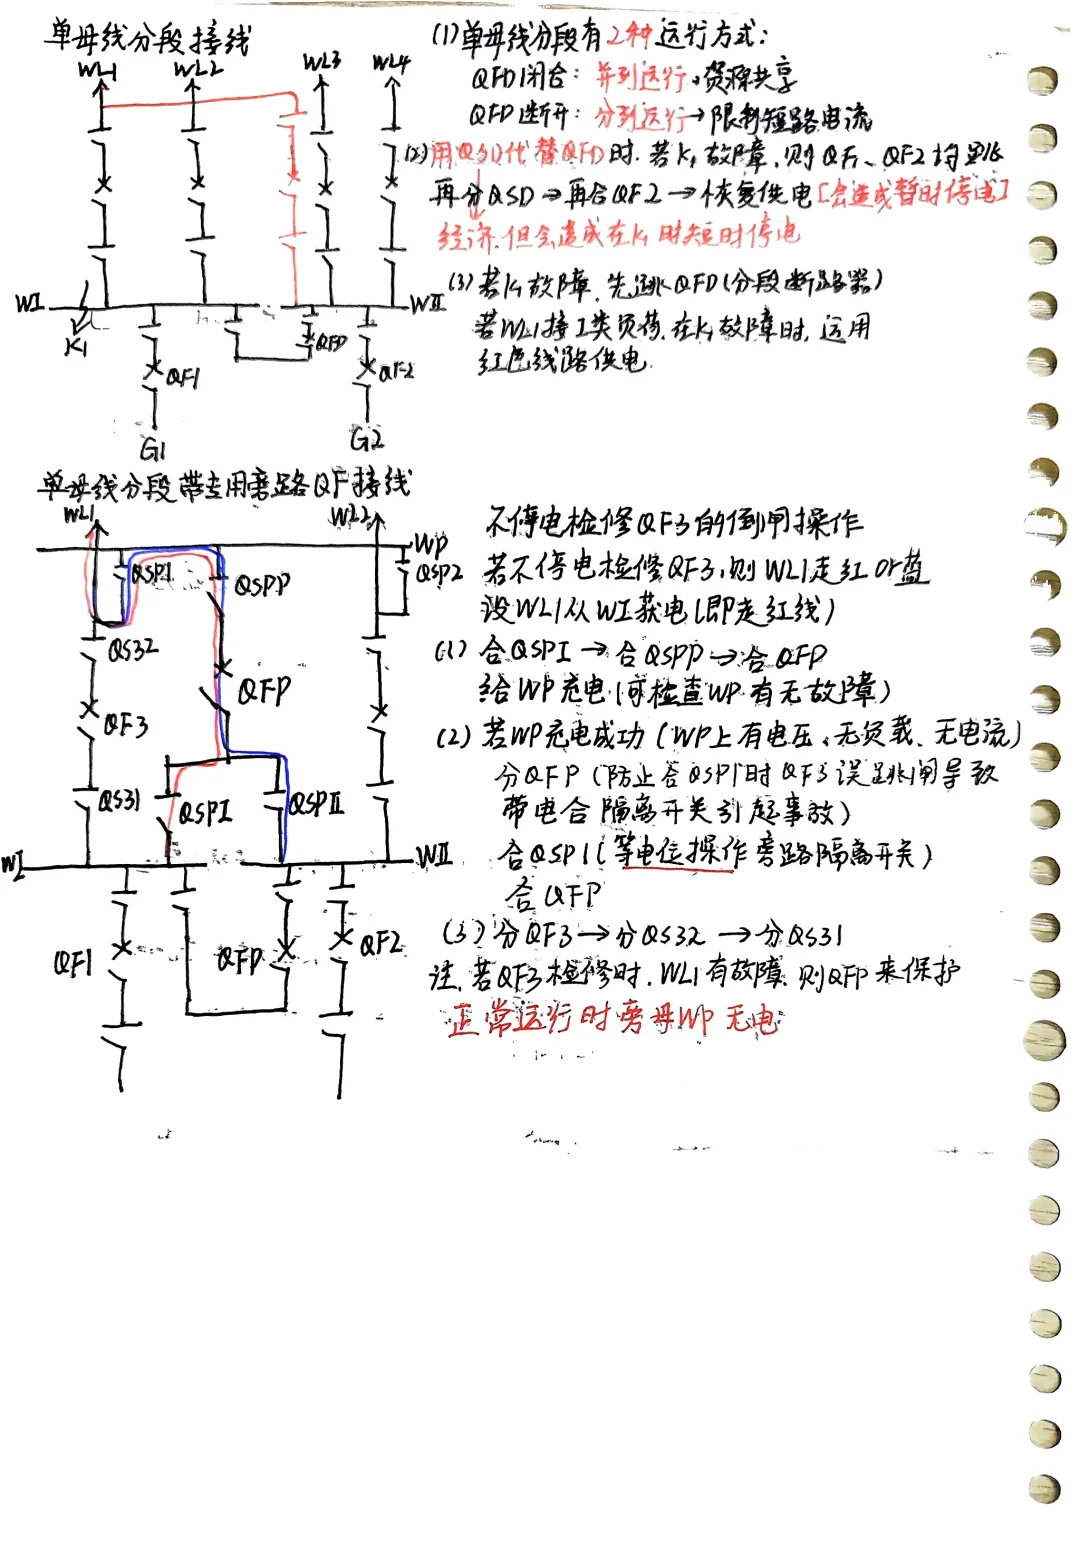 单母线分段接线
WL1 WL2 WL3 WL4
WI
WII
K1
QFD
QF1
QF2
G1
G2
(1)单母线分段有2种运行方式:
QFD闭合: 并列运行→资源共享
QFD断开: 分列运行→限制短路电流
(2)用QSD代替QFD时.若K1故障,则QF1、QF2均跳
再分QSD→再合QF2→恢复供电[会造成暂时停电]
经济.但会造成在K1时短时停电
(3)若K1故障.先跳QFD(分段断路器)
若WL1接I类负荷.在K1故障时,运用
红色线路供电.
单母线分段带专用旁路QF接线
WL1
WL2
WP
QSP1
QSPP
QSP2
QS32
QFP
QF3
QS31
QSPI
QSPII
WI
WII
QF1
QFD
QF2
不停电检修QF3的倒闸操作
若不停电检修QF3,则WL1走红or蓝
设WL1从WI获电(即走红线)
(1)合QSPI→合QSPP→合QFP
给WP充电(可检查WP有无故障)
(2)若WP充电成功(WP上有电压、无负载、无电流)
分QFP(防止合QSP1时QF3误跳闸导致
带电合隔离开关引起事故)
合QSP1(等电位操作旁路隔离开关)
合QFP
(3)分QF3→分QS32→分QS31
注.若QF3检修时.WL1有故障.则QFP来保护
正常运行时旁母WP无电